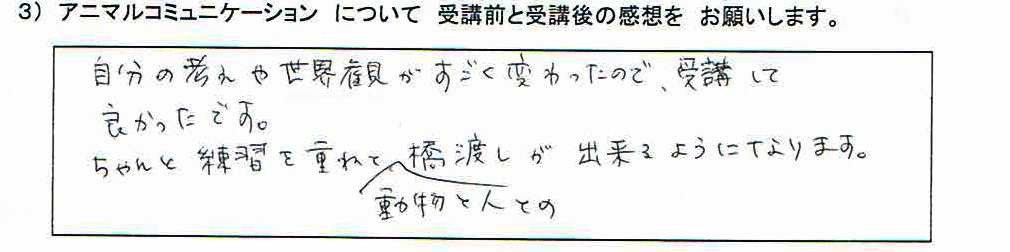 3）アニマルコミュニケーション について 受講前と受講後の感想を お願いします。
自分の考えや世界観がすごく変わったので、受講して
良かったです。
ちゃんと練習を重ねて橋渡しが出来るようになります。
動物と人との